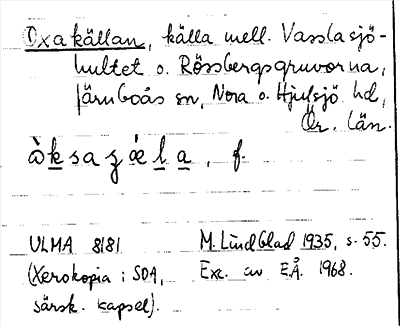 Oxakällan, källa mell. Vasslasjö-
hultet o. Rössbergsgruvorna,
Järnboås sn, Nora o. Hjulsjö hd,
Ör. län.
ὰksazǽla, f.
ULMA 8181 M. Lindblad 1935, s. 55.
(Xerokopia i SOA, Exc. av E.Å. 1968.
särsk. kapsel).